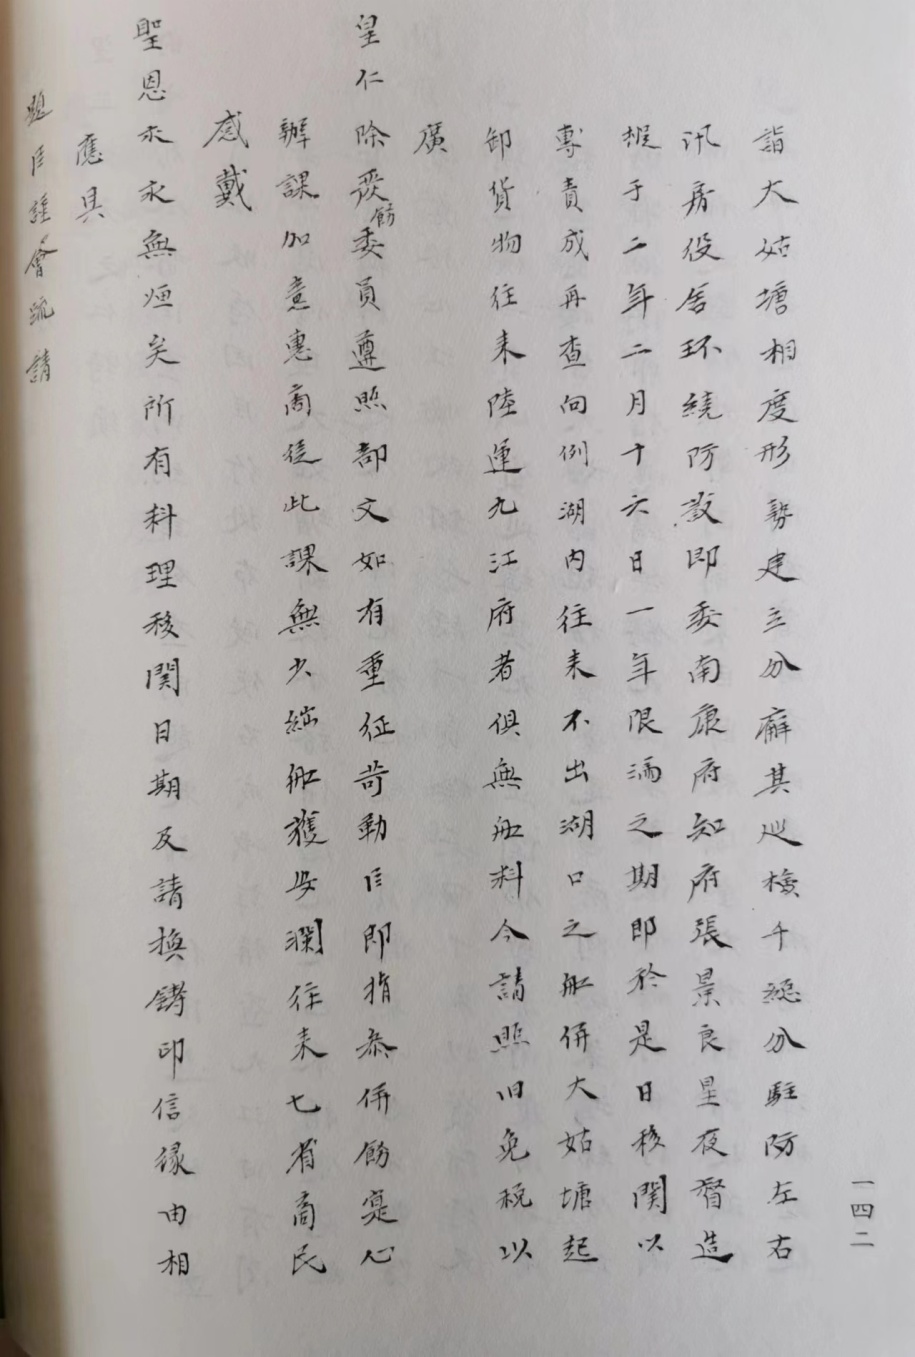 詣大姑塘相度形勢建立分廨其巡檢千總分駐防左右
汛房役舍环繞防護即委南康府知府張景良星夜督造
擬于二年二月十六日一年限滿之期即於是日移関以
專責成再查向例湖内往来不出湖口之船併大姑塘起
卸貨物往来陸運九江府者俱無船料今請照旧免税以
廣
皇仁除飭委員遵照部文如有重征苛勒臣即指参併飭寔心
辦課加意惠商從此課無欠絀船獲安瀾往来七省商民
感戴
聖恩永永無洹矣所有料理移関日期及請換鑄印信缘由相
應具
題臣謹會疏請
一四二